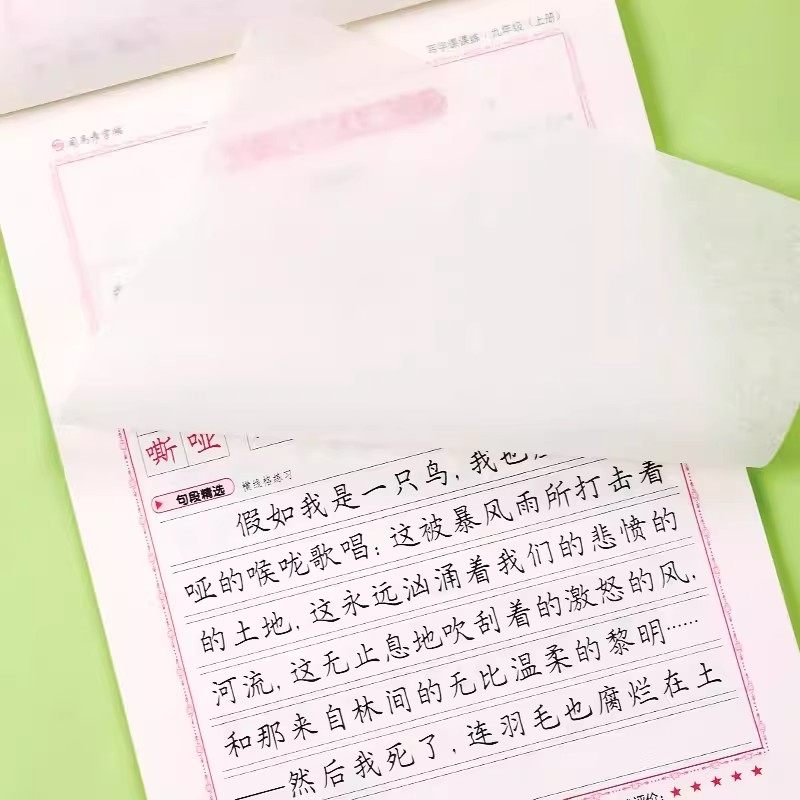 写字课课练·九年级（上册）
司马彦字帖
嘶哑
句段精选 横线格练习
假如我是一只鸟，我也
哑的喉咙歌唱：这被暴风雨所打击着
的土地，这永远汹涌着我们的悲愤的
河流，这无止息地吹刮着的激怒的风，
和那来自林间的无比温柔的黎明……
——然后我死了，连羽毛也腐烂在土
评价：★★★★★